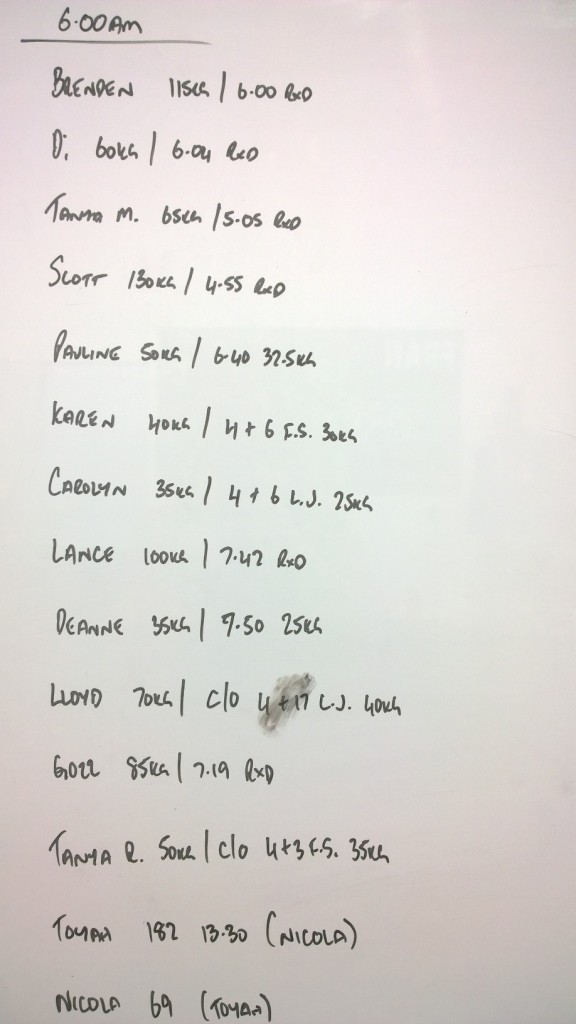 6.00AM
BRENDEN 115KG / 6.00 RXD
Di 60KG / 6.04 RXD
TANYA M. 65KG / 5.05 RXD
SCOTT 130KG / 4.55 RXD
PAULINE 50KG / 6.40 32.5KG
KAREN 40KG / 4 + 6 F.S. 30KG
CAROLYN 35KG / 4 + 6 L.J. 25KG
LANCE 100KG / 7.42 RXD
DEANNE 35KG / 7.50 25KG
LLOYD 70KG / C/O 4 + 17 L.J. 40KG
GOZZ 85KG / 7.19 RXD
TANYA R. 50KG / C/O 4+3 F.S. 35KG
TOYAH 182 13.30 (NICOLA)
NICOLA 69 (TOYAH)